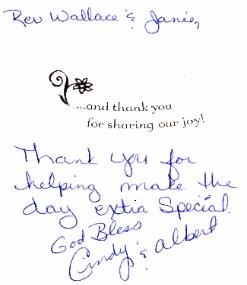 Rev Wallace & Janie,
...and thank you
for sharing our joy!
Thank you for
helping make the
day extra Special.
God Bless
Cindy & Albert